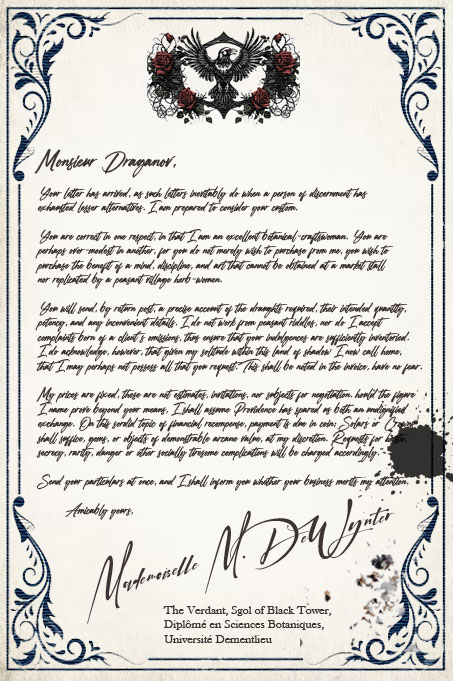 Monsieur Draganov,
Your letter has arrived, as such letters inevitably do when a person of discernment has
exhausted lesser alternatives. I am prepared to consider your custom.
You are correct in one respect, in that I am an excellent botanical-craftswoman. You are
perhaps over-modest in another, for you do not merely wish to purchase from me, you wish to
purchase the benefit of a mind, discipline, and art that cannot be obtained at a market stall,
nor replicated by a peasant village herb-women.
You will send, by return post, a precise account of the draughts required, their intended quantity,
potency, and any inconvenient details. I do not work from peasant riddles, nor do I accept
complaints born of a client's omissions, thus ensure that your indulgences are sufficiently inventoried.
I do acknowledge, however, that given my solitude within this land of shadow I now call home,
that I may perhaps not possess all that you request. This shall be noted in the invoice, have no fear.
My prices are fixed, these are not estimates, invitations, nor subjects for negotiation. hould the figure
I name prove beyond your means, I shall assume Providence has spared us both an undignified
exchange. On this sordid topic of financial recompense, payment is due in coin; Solars or Crowns
shall suffice, gems, or objects of demonstrable arcane value, at my discretion. Requests for haste,
secrecy, rarity, danger or other socially tiresome complications will be charged accordingly.
Send your particulars at once, and I shall inform you whether your business merits my attention.
Amicably yours,
Mademoiselle M. DeWynter
The Verdant, Sgol of Black Tower,
Diplômé en Sciences Botaniques,
Université Dementlieu